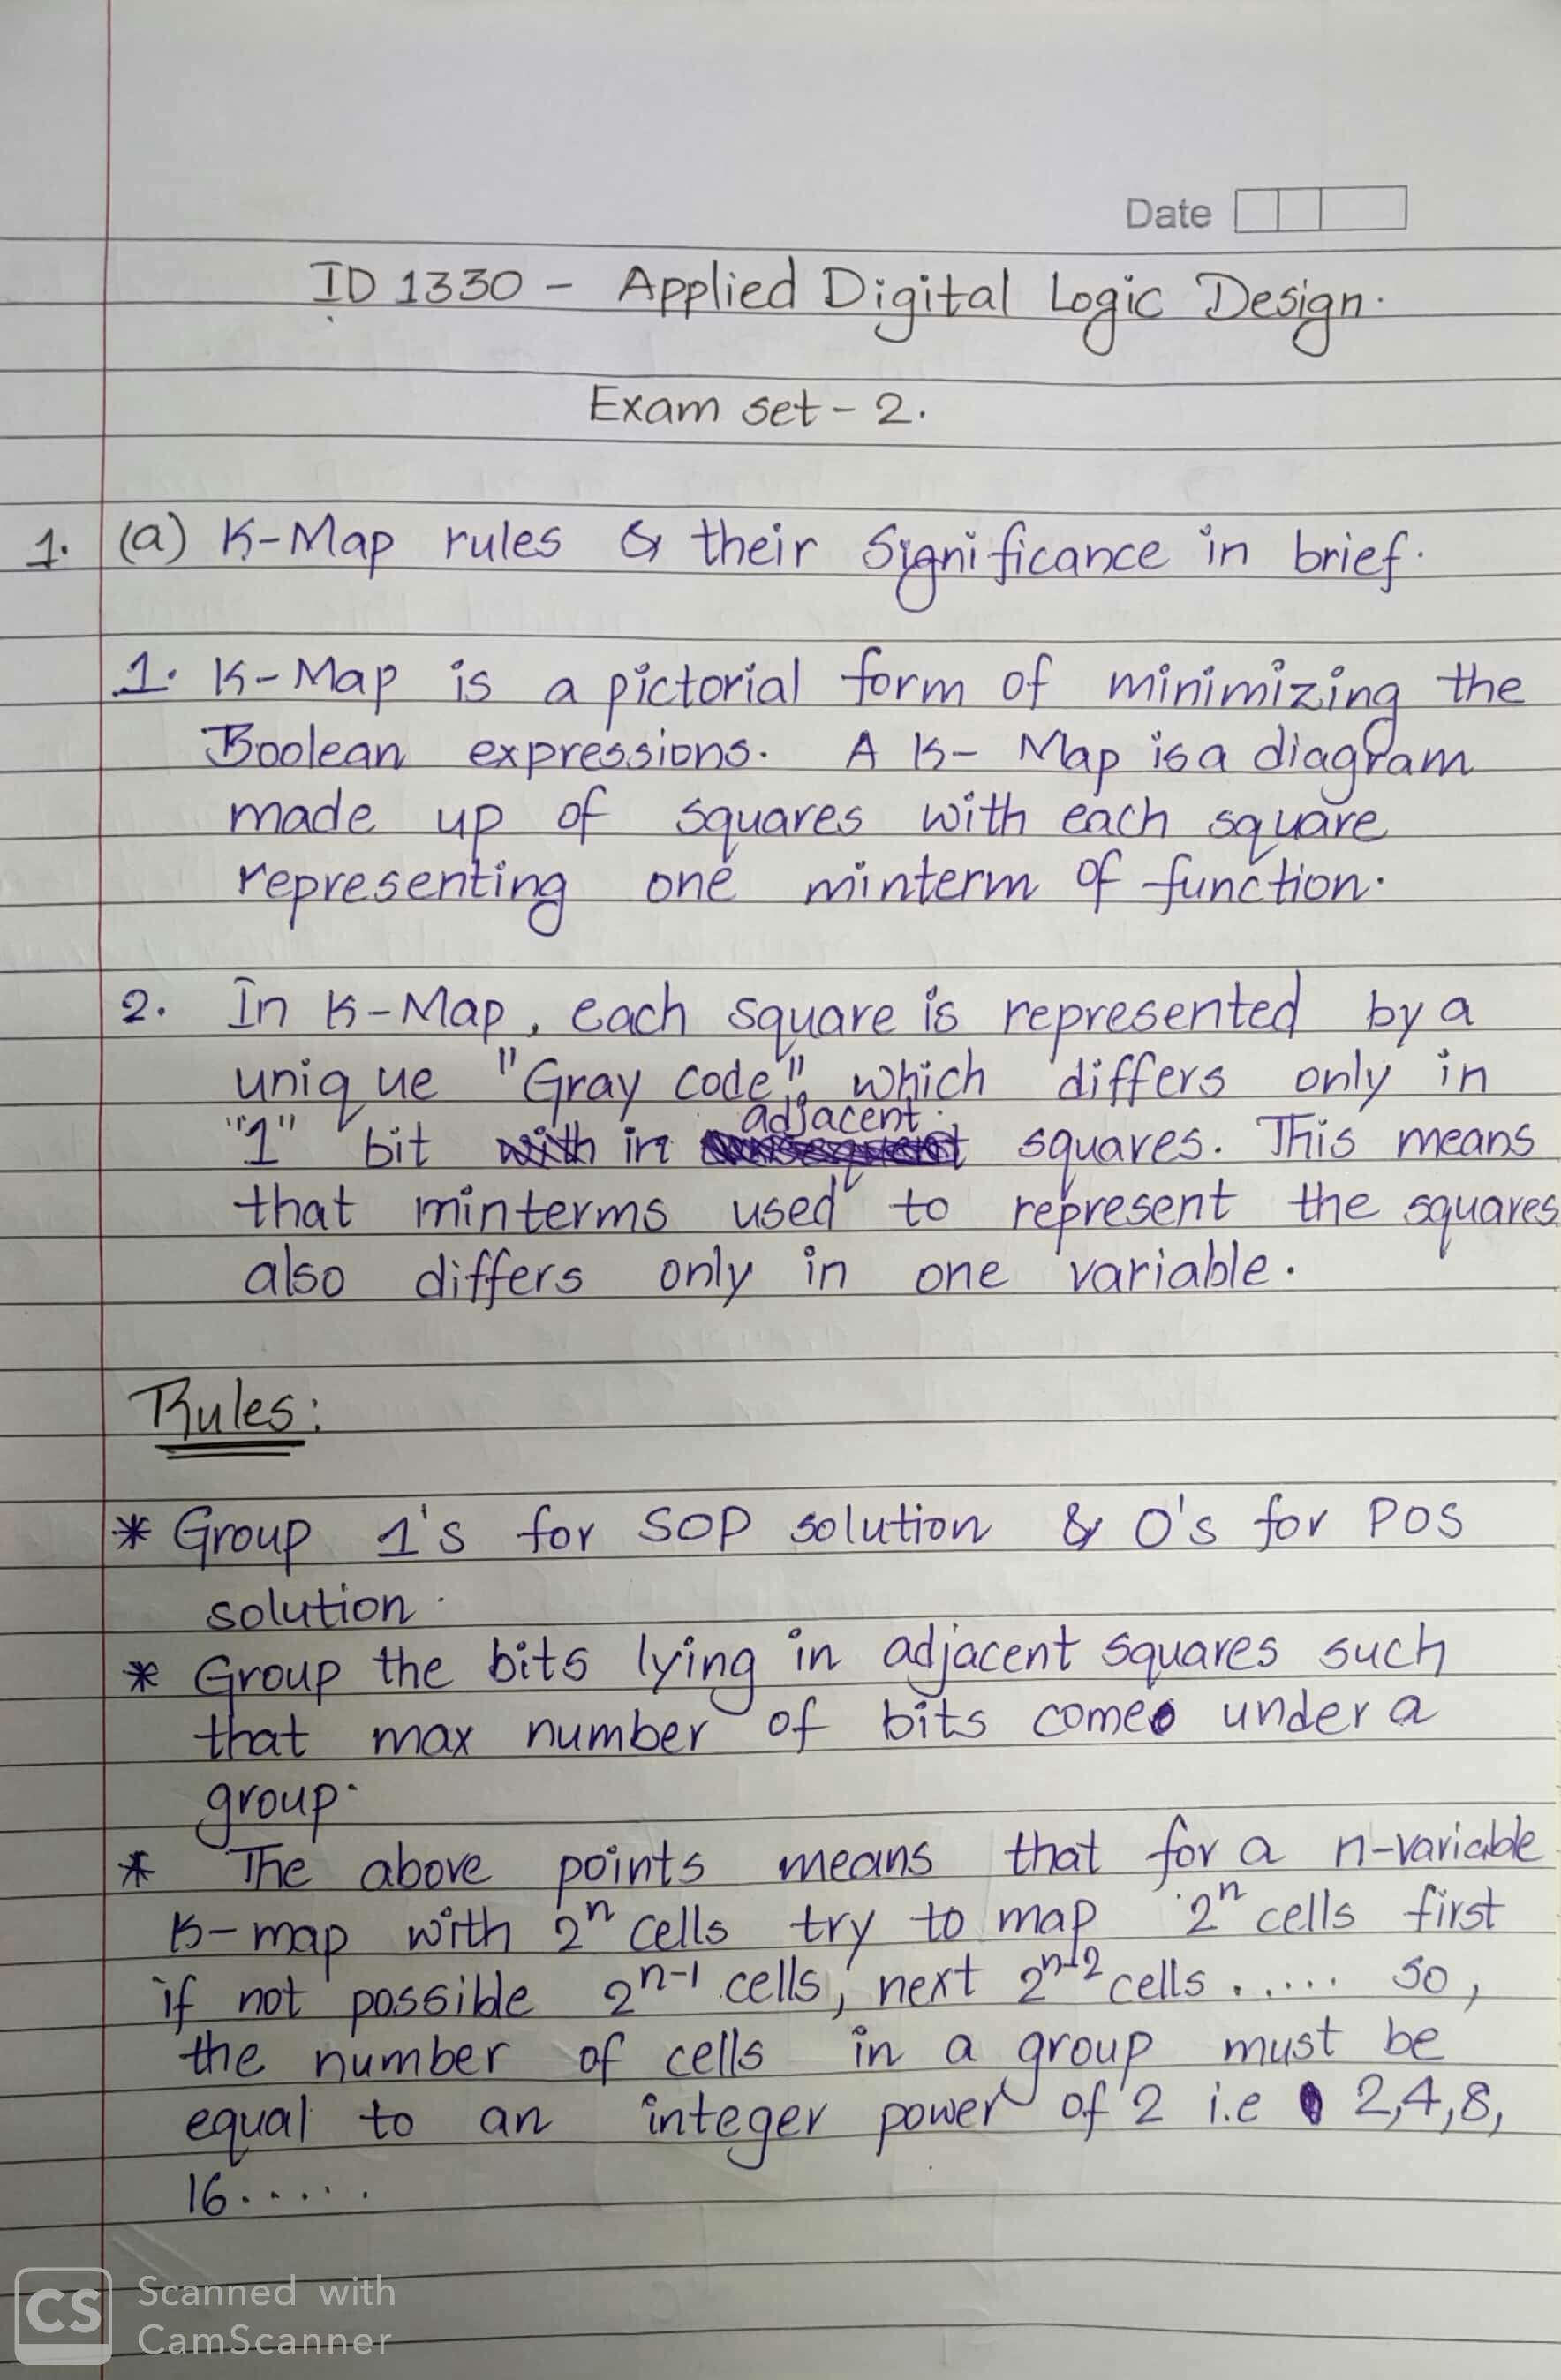 Date
ID 1330 - Applied Digital Logic Design.
Exam set - 2.
1. (a) K-Map rules & their Significance in brief.
1. K-Map is a pictorial form of minimizing the
Boolean expressions. A K- Map is a diagram
made up of squares with each square
representing one minterm of function.
2. In K-Map, each square is represented by a
unique "Gray code", which differs only in
adjacent
"1" bit with in squares. This means
that minterms used to represent the squares
also differs only in one variable.
Rules:
* Group 1's for SOP solution & 0's for POS
solution.
* Group the bits lying in adjacent squares such
that max number of bits come under a
group.
* The above points means that for a n-variable
K-map with 2ⁿ cells try to map 2ⁿ cells first
if not possible 2ⁿ⁻¹ cells, next 2ⁿ⁻² cells ..... so,
the number of cells in a group must be
equal to an integer power of 2 i.e 2,4,8,
16.....
CS Scanned with
CamScanner